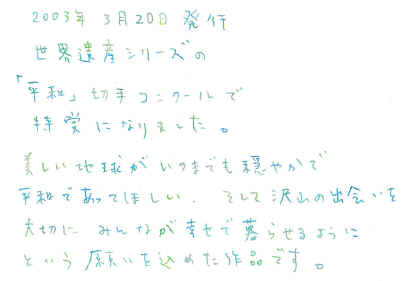 2003年 3月20日 発行
世界遺産シリーズの
「平和」切手コンクールで
特賞になりました。
美しい地球がいつまでも穏やかで
平和であってほしい、そして沢山の出会いを
大切に みんなが幸せで暮らせるように
という願いを込めた作品です。